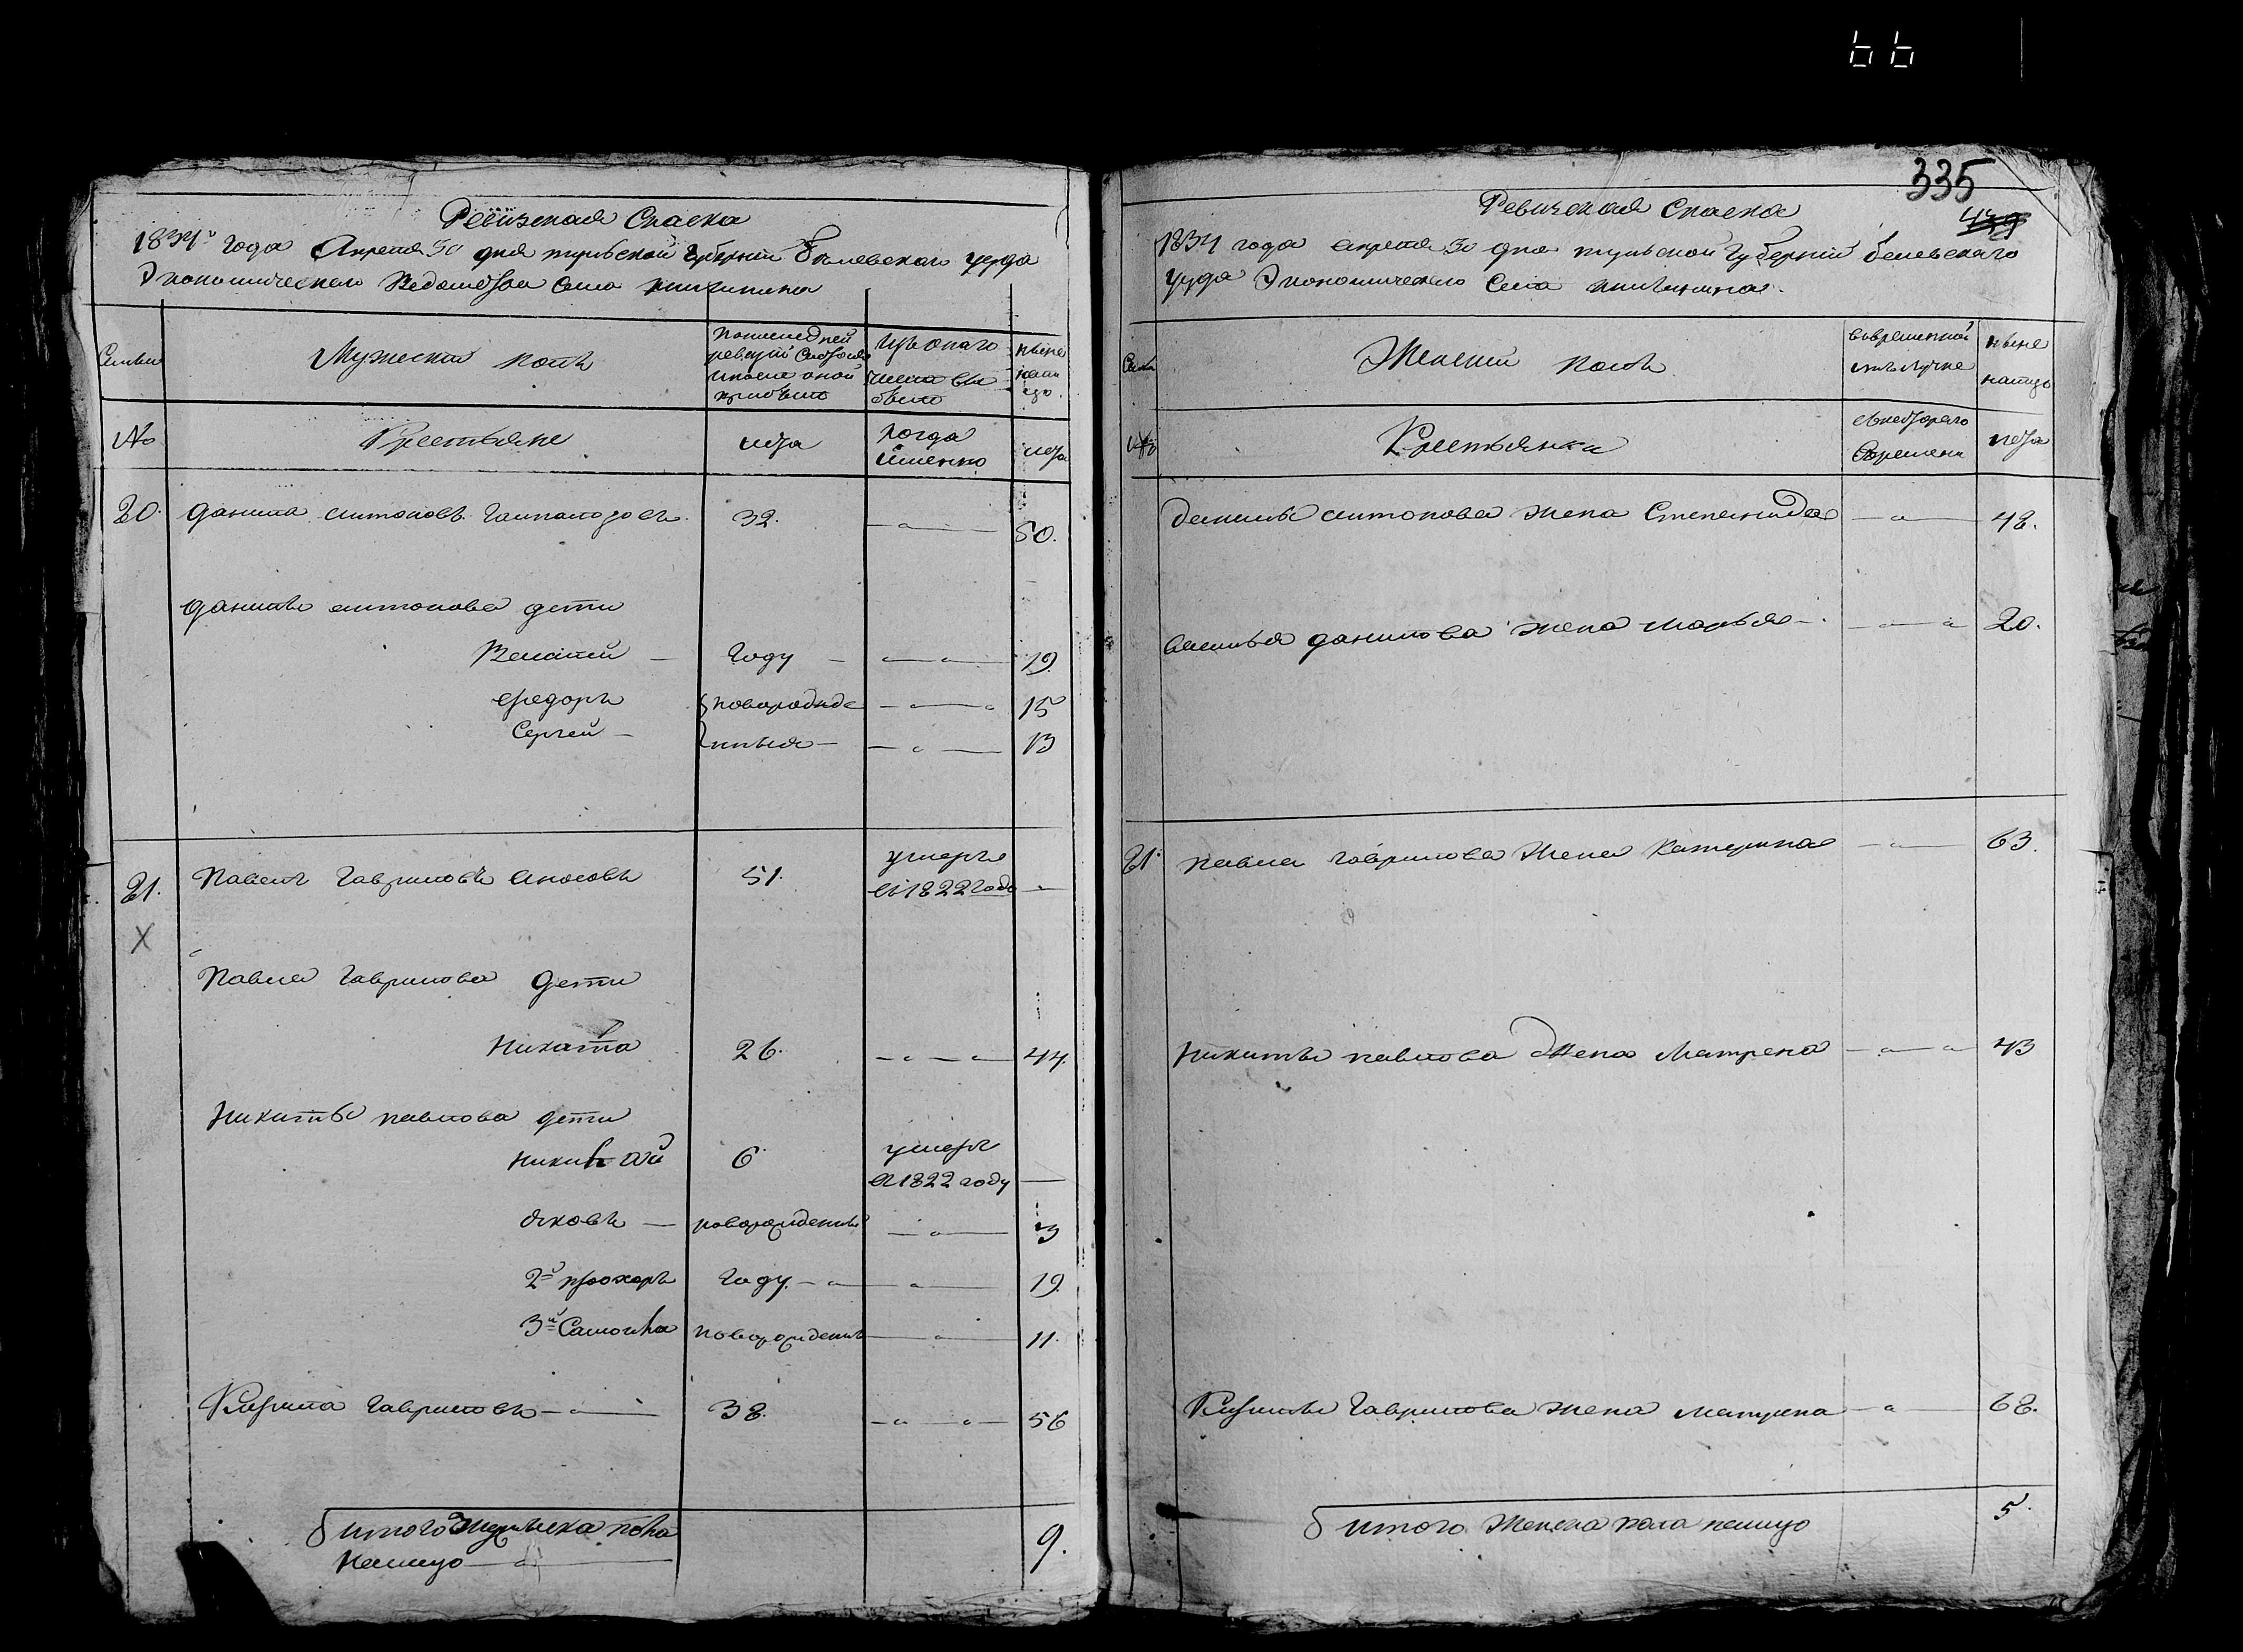 66
335
439
Ревизская Сказка
1834го года Апреля 30 дня тульской Губернии Белевскаго уезда
Экономическаго Ведомства Села
Семьи
Мужеской полъ
По последней
ревизии Состояло
и после оной
прибыло
Изъ онаго
числа вы
было
Ныне
на ли
цо
№
Крестьяне
лета
когда
имянно
лета
20. Данила антоновъ 32. 50.
Данилы антонова дети
Василей году 19
Федоръ новорожде 15
Сергей нныя 13
21. Павелъ Гавриловъ 51.
умеръ
въ 1822 годе
X
Павла Гаврилова дети
Никита 26. 44
Никиты павлова дети
Николай 6
умеръ
въ 1822 году
Яковъ новорожденный 3
2й прохоръ году 19
3й Самойла новорожденный 11.
Кирила Гавриловъ 38. 56
итого Мужеска пола
налицо 9.
Ревизская Сказка
1834 года апреля 30 дня тульской Губернии белевскаго
уезда Экономическаго Села
Семьи
Женский полъ
во временной
отлучке
ныне
налицо
№
Крестьянки
съ котораго
времени
лета
Данилы антонова жена Степанида 48.
Василья данилова жена марья 20.
21. павла гаврилова жена Катерина 63.
Никиты павлова жена Матрена 43
Кирилы Гаврилова жена матрена 68.
итого женска пола налицо 5.